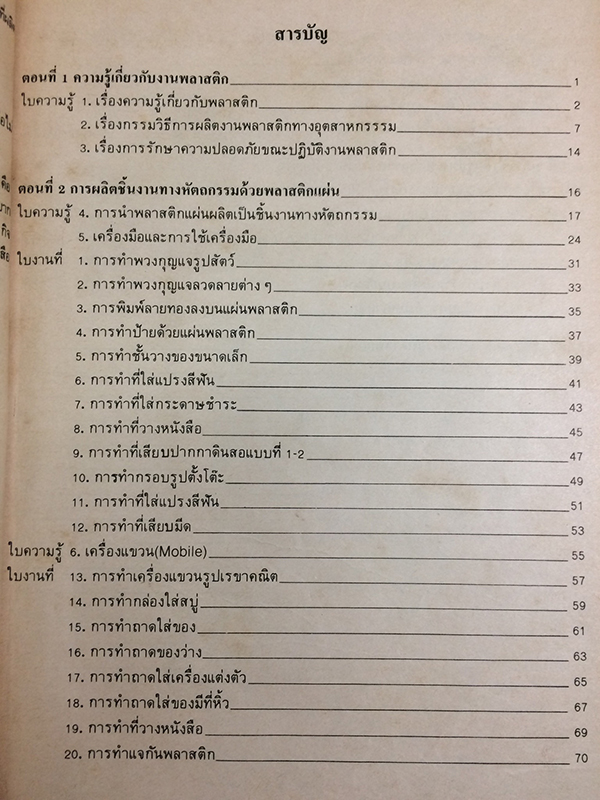 สารบัญ
ตอนที่ 1 ความรู้เกี่ยวกับงานพลาสติก 1
ใบความรู้ 1. เรื่องความรู้เกี่ยวกับพลาสติก 2
2. เรื่องกรรมวิธีการผลิตงานพลาสติกทางอุตสาหกรรรม 7
3. เรื่องการรักษาความปลอดภัยขณะปฏิบัติงานพลาสติก 14
ตอนที่ 2 การผลิตชิ้นงานทางหัตถกรรมด้วยพลาสติกแผ่น 16
ใบความรู้ 4. การนำพลาสติกแผ่นผลิตเป็นชิ้นงานทางหัตถกรรม 17
5. เครื่องมือและการใช้เครื่องมือ 24
ใบงานที่ 1. การทำพวงกุญแจรูปสัตว์ 31
2. การทำพวงกุญแจลวดลายต่าง ๆ 33
3. การพิมพ์ลายทองลงบนแผ่นพลาสติก 35
4. การทำป้ายด้วยแผ่นพลาสติก 37
5. การทำชั้นวางของขนาดเล็ก 39
6. การทำที่ใส่แปรงสีฟัน 41
7. การทำที่ใส่กระดาษชำระ 43
8. การทำที่วางหนังสือ 45
9. การทำที่เสียบปากกาดินสอแบบที่ 1-2 47
10. การทำกรอบรูปตั้งโต๊ะ 49
11. การทำที่ใส่แปรงสีฟัน 51
12. การทำที่เสียบมีด 53
ใบความรู้ 6. เครื่องแขวน(Mobile) 55
ใบงานที่ 13. การทำเครื่องแขวนรูปเรขาคณิต 57
14. การทำกล่องใส่สบู่ 59
15. การทำถาดใส่ของ 61
16. การทำถาดของว่าง 63
17. การทำถาดใส่เครื่องแต่งตัว 65
18. การทำถาดใส่ของมีที่หิ้ว 67
19. การทำที่วางหนังสือ 69
20. การทำแจกันพลาสติก 70